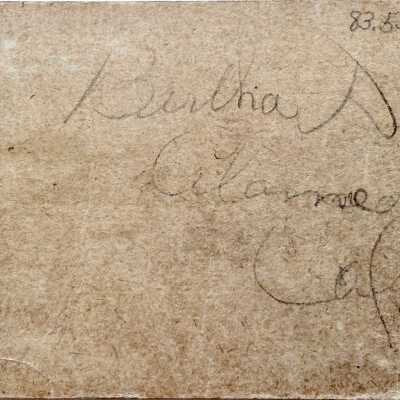 83.5
Bertha D
Alame
Cal